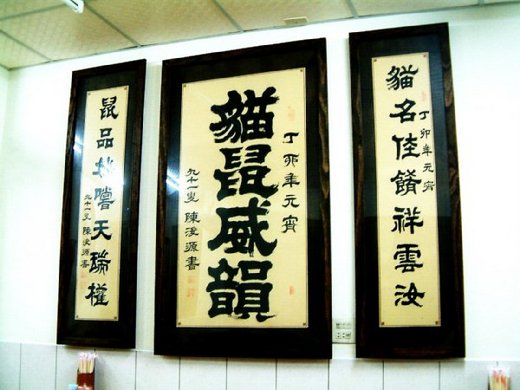 貓名佳餚祥雲
丁卯年元宵
丁卯年元宵
貓鼠威韻
九十一叟 陳浚源書
鼠品嚐天瑞權
九十一叟 陳浚源書